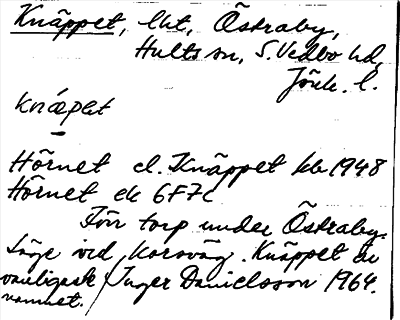 Knäppet, lht, Östraby,
Hults sn, S. Vedbo hd,
Jönk. l.
knæp̱et
Hörnet el. Knäppet kb 1948
Hörnet ek 6F7c
Förr torp under Östraby.
Läge vid korsväg. Knäppet är
vanligaste
namnet. / Inger Danielsson 1964.